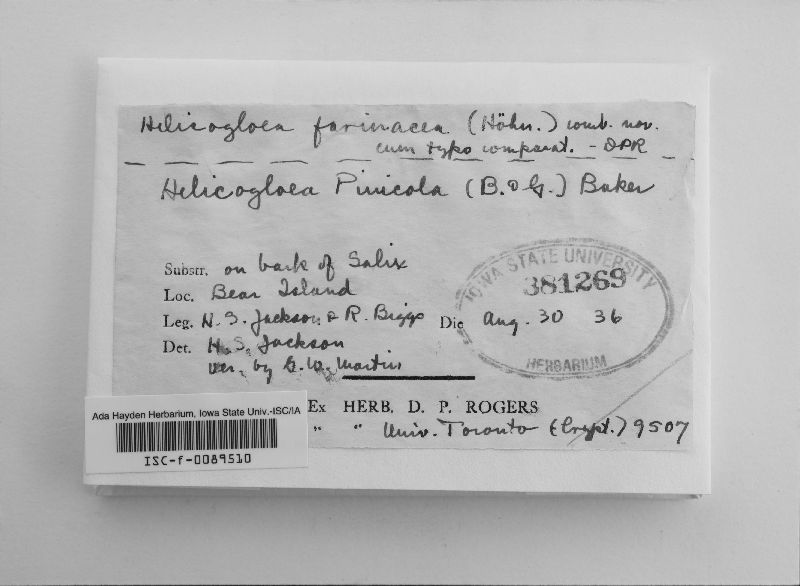 Helicogloea farinacea (Höhn.) comb. nov.
cum typo comparat. - DPR
Helicogloea Pinicola (B. & G.) Baker
Substr. on bark of Salix
Loc. Bear Island
Leg. H. S. Jackson & R. Biggs Die Aug. 30 36
Det. H. S. Jackson
Ver. by G. W. Martin
IOWA STATE UNIVERSITY
381269
HERBARIUM
Ex HERB. D. P. ROGERS
" " Univ. Toronto (Crypt.) 9507
Ada Hayden Herbarium, Iowa State Univ.-ISC/IA
ISC-f-0089510